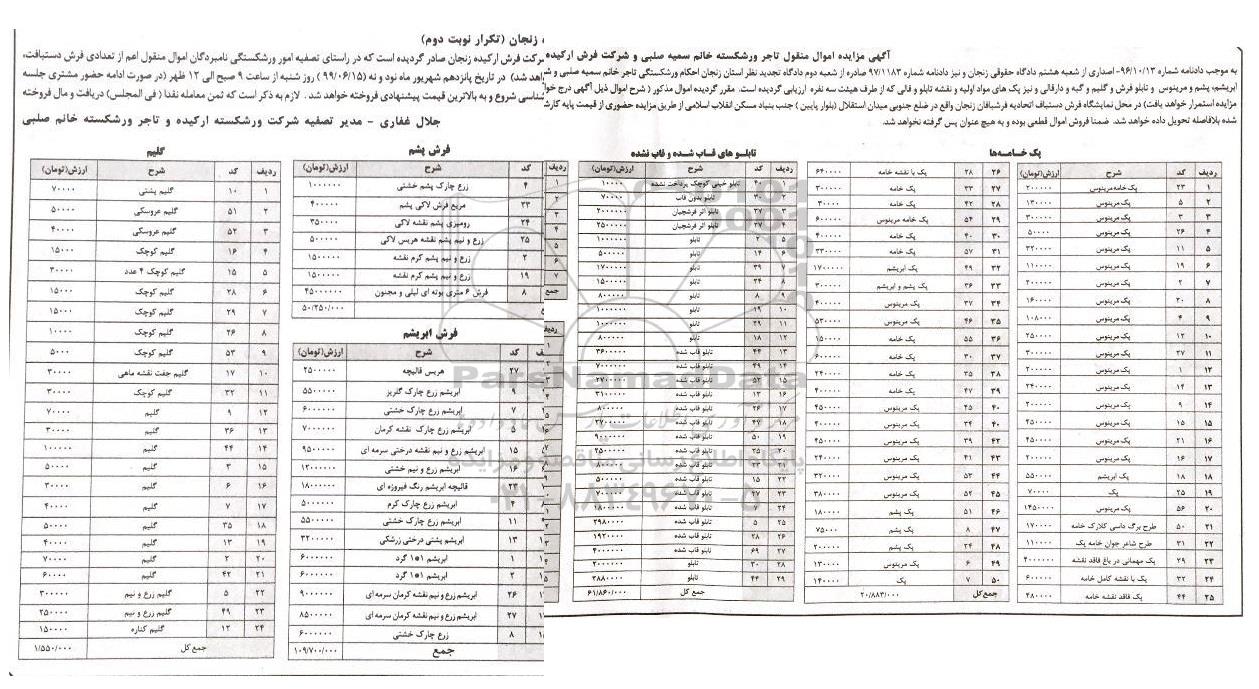 آگهی مزایده اموال منقول تاجر ورشکسته خانم سمیه صلبی و شرکت فرش ارکیده
، زنجان (تکرار نوبت دوم)
به موجب دادنامه شماره ۹۶/۱۰/۱۳- اصداری از شعبه هشتم دادگاه حقوقی زنجان و نیز دادنامه شماره ۹۷/۱۱۸۳ صادره از شعبه دوم دادگاه تجدید نظر استان زنجان احکام ورشکستگی تاجر خانم سمیه صلبی و
شرکت فرش ارکیده زنجان صادر گردیده است که در راستای تصفیه امور ورشکستگی نامبردگان اموال منقول اعم از تعدادی فرش دستبافت،
ابریشم، پشم و مرینوس و تابلو فرش و گلیم و گبه و دارقالی و نیز پک های مواد اولیه و نقشه تابلو و قالی که از طرف هیئت سه نفره ارزیابی گردیده است. مقرر گردیده اموال مذکور ( شرح اموال ذیل آگهی درج
شد) در تاریخ پانزدهم شهریور ماه نود و نه (۹۹/۰۶/۱۵ ) روز شنبه از ساعت ۹ صبح الی ۱۲ ظهر (در صورت ادامه حضور مشتری جلسه
مزایده استمرار خواهد یافت) در محل نمایشگاه فرش دستباف اتحادیه فرشبافان زنجان واقع در ضلع جنوبی میدان استقلال (بلوار پایین ) جنب بنیاد مسکن انقلاب اسلامی از طریق مزایده حضوری از قیمت پایه
شروع و به بالاترین قیمت پیشنهادی فروخته خواهد شد . لازم به ذکر است که ثمن معامله نقدا ( فی المجلس) دریافت و مال فروخته
شده بلافاصله تحویل داده خواهد شد. ضمنا فروش اموال قطعی بوده و به هیچ عنوان پس گرفته نخواهد شد.
جلال غفاری - مدیر تصفیه شرکت ورشکسته ارکیده و تاجر ورشکسته خانم صلبی
پک خامه‌ها
ردیف کد شرح ارزش(تومان)
۱ ۲۳ پک خامه مرینوس ۲۰۰۰۰۰
۲ ۵ پک مرینوس ۱۳۰۰۰۰
۳ ۳ پک مرینوس ۳۰۰۰۰۰
۴ ۲۶ پک مرینوس ۵۰۰۰۰
۵ ۱۱ پک مرینوس ۳۲۰۰۰۰
۶ ۱۹ پک مرینوس ۱۱۰۰۰۰
۷ ۲ پک مرینوس ۲۰۰۰۰۰
۸ ۲۰ پک مرینوس ۱۶۰۰۰۰
۹ ۴ پک مرینوس ۱۰۸۰۰۰
۱۰ ۱۲ پک مرینوس ۲۵۰۰۰۰
۱۱ ۲۷ پک مرینوس ۳۰۰۰۰۰
۱۲ ۱ پک مرینوس ۲۰۰۰۰۰
۱۳ ۱۴ پک مرینوس ۲۴۰۰۰۰
۱۴ ۹ پک مرینوس ۲۰۰۰۰۰
۱۵ ۱۵ پک مرینوس ۲۵۰۰۰۰
۱۶ ۲۱ پک مرینوس ۴۵۰۰۰۰
۱۷ ۱۶ پک مرینوس ۲۰۰۰۰۰
۱۸ ۱۸ پک ابریشم ۵۵۰۰۰۰
۱۹ ۲۵ پک ۷۰۰۰۰
۲۰ ۵۶ پک مرینوس ۱۴۵۰۰۰۰
۲۱ ۵۰ طرح برگ داسی کلارک خامه ۱۷۰۰۰۰
۲۲ ۳۱ طرح شاعر جوان خامه پک ۱۱۰۰۰۰
۲۳ ۲۹ پک مهمانی در باغ فاقد نقشه ۴۰۰۰۰۰۰
۲۴ ۳۲ پک با نقشه کامل خامه ۶۰۰۰۰۰
۲۵ ۴۴ پک فاقد نقشه خامه ۴۸۰۰۰۰
۲۶ ۲۸ پک با نقشه خامه ۶۴۰۰۰۰
۲۷ ۳۳ پک خامه ۳۰۰۰۰۰
۲۸ ۴۲ پک خامه ۳۰۰۰۰
۲۹ ۵۴ پک خامه مرینوس ۶۰۰۰۰۰
۳۰ ۴۰ پک خامه ۴۰۰۰۰۰
۳۱ ۵۷ پک خامه ۳۳۰۰۰۰
۳۲ ۴۹ پک ابریشم ۱۷۰۰۰۰۰
۳۳ ۳۶ پک پشم و ابریشم ۳۰۰۰۰۰
۳۴ ۳۷ پک مرینوس ۴۰۰۰۰۰
۳۵ ۴۶ پک مرینوس ۵۳۰۰۰۰
۳۶ ۵۵ پک خامه ۱۵۰۰۰۰
۳۷ ۳۰ پک خامه ۶۰۰۰۰۰
۳۸ ۳۵ پک خامه ۲۴۰۰۰۰
۳۹ ۴۷ پک خامه ۴۰۰۰۰۰
۴۰ ۴۵ پک مرینوس ۴۵۰۰۰۰
۴۱ ۳۴ پک مرینوس ۲۰۰۰۰۰
۴۲ ۳۹ پک مرینوس ۴۵۰۰۰۰
۴۳ ۴۱ پک مرینوس ۲۴۰۰۰۰
۴۴ ۵۳ پک مرینوس ۳۲۰۰۰۰
۴۵ ۵۲ پک مرینوس ۳۸۰۰۰۰
۴۶ ۵۱ پک پشم ۱۸۰۰۰۰
۴۷ ۸ پک پشم ۷۵۰۰۰
۴۸ ۲۴ پک پشم ۲۰۰۰۰۰
۴۹ ۶ پک مرینوس ۱۳۰۰۰۰
۵۰ ۷ پک ۱۴۰۰۰۰
جمع کل ۲۰/۸۸۳/۰۰۰
تابلو های قاب شده و قاب نشده
ردیف کد شرح ارزش(تومان)
تابلو خیلی کوچک پرداخت نشده ۱۰۰۰۰
تابلو بدون قاب ۷۰۰۰۰
تابلو اثر فرشچیان ۲۰۰۰۰۰۰
تابلو اثر فرشچیان ۲۵۰۰۰۰۰
۵ ۲ تابلو ۱۰۰۰۰۰۰
۶ ۱۴ تابلو ۵۰۰۰۰۰
۷ ۳۹ تابلو ۱۷۰۰۰۰۰
۸ ۳۴ تابلو ۱۵۰۰۰۰۰
۹ ۸ تابلو ۸۰۰۰۰۰
۱۰ ۱۹ تابلو ۱۰۰۰۰۰۰
۱۱ ۲۹ تابلو ۱۰۰۰۰۰۰
۱۲ ۱۸ تابلو ۸۰۰۰۰۰
۱۳ ۴۴ تابلو قاب شده ۳۶۰۰۰۰۰
۱۴ ۴۹ تابلو قاب شده
۱۵ ۵۲ تابلو قاب شده
۱۶ ۱۳ تابلو قاب شده ۳۱۰۰۰۰۰
۱۷ ۲۶ تابلو قاب شده
۱۸ ۴۷ تابلو قاب شده
۱۹ ۵۰ تابلو قاب شده
۲۰ ۲۵ تابلو قاب شده
۲۱ ۲۳ تابلو قاب شده
۲۲ ۱۵ تابلو قاب شده
۲۳ ۲۷ تابلو قاب شده
۲۴ تابلو قاب شده
۲۵ ۵ تابلو قاب شده ۲۹۸۰۰۰۰
۲۶ ۲۸ تابلو قاب شده ۱۹۲۰۰۰۰
۲۷ ۶۹ تابلو قاب شده ۴۰۰۰۰۰۰
۲۸ ۳۰ تابلو ۲۰۰۰۰۰۰
۲۹ ۴۴ تابلو ۳۸۸۰۰۰۰
جمع کل ۶۱/۸۶۰/۰۰۰
فرش پشم
کد شرح ارزش(تومان)
۴ زرع چارک پشم خشتی ۱۰۰۰۰۰۰
۲۳ مربع فرش لاکی پشم ۴۰۰۰۰۰
۲۴ رومیزی پشم نقشه لاکی ۳۵۰۰۰۰
۲۵ زرع و نیم پشم نقشه هریس لاکی ۵۰۰۰۰۰
۲ زرع و نیم پشم کرم نقشه ۱۵۰۰۰۰۰
۱۹ زرع و نیم پشم کرم نقشه ۱۵۰۰۰۰۰
۸ فرش ۶ متری بوته ای لیلی و مجنون ۴۵۰۰۰۰۰۰
جمع ۵۰/۲۵۰/۰۰۰
فرش ابریشم
ردیف کد شرح ارزش(تومان)
۲۷ هریس قالیچه ۲۵۰۰۰۰۰
۹ ابریشم زرع چارک گلریز ۵۵۰۰۰۰۰
۷ ابریشم زرع چارک خشتی ۶۰۰۰۰۰۰
۵ ابریشم زرع چارک نقشه کرمان ۷۰۰۰۰۰۰
۱۵ ابریشم زرع و نیم نقشه درختی سرمه ای ۹۵۰۰۰۰۰
۱۶ ابریشم زرع و نیم خشتی ۱۲۰۰۰۰۰۰
۲۳ قالیچه ابریشم رنگ فیروزه ای ۱۸۰۰۰۰۰۰
۴ ابریشم زرع چارک کرم ۵۰۰۰۰۰۰
۱۱ ابریشم زرع چارک خشتی ۵۵۰۰۰۰۰
۱۳ ابریشم پشتی درختی زرشکی ۳۲۰۰۰۰۰
۱ ابریشم ۱*۱ گرد ۶۰۰۰۰۰۰
۲ ابریشم ۱*۱ گرد ۶۰۰۰۰۰۰
۲۶ ابریشم زرع و نیم نقشه کرمان سرمه ای ۹۰۰۰۰۰۰
۲۷ ابریشم زرع و نیم نقشه کرمان سرمه ای ۸۵۰۰۰۰۰
۸ زرع چارک خشتی ۶۰۰۰۰۰۰
جمع ۱۰۹/۷۰۰/۰۰۰
گلیم
ردیف کد شرح ارزش(تومان)
۱ ۱۰ گلیم پشتی ۷۰۰۰۰
۲ ۵۱ گلیم عروسکی ۵۰۰۰۰
۳ ۵۲ گلیم عروسکی ۴۰۰۰۰
۴ ۱۶ گلیم کوچک ۱۵۰۰۰
۵ ۱۵ گلیم کوچک ۴ عدد ۳۰۰۰۰
۶ ۲۸ گلیم کوچک ۱۵۰۰۰
۷ ۲۹ گلیم کوچک ۱۵۰۰۰
۸ ۲۶ گلیم کوچک ۱۰۰۰۰
۹ ۵۳ گلیم کوچک ۵۰۰۰
۱۰ ۱۷ گلیم جفت نقشه ماهی ۳۰۰۰۰
۱۱ ۳۲ گلیم کوچک ۳۰۰۰۰
۱۲ ۹ گلیم ۷۰۰۰۰
۱۳ ۳۶ گلیم ۳۰۰۰۰
۱۴ ۴۴ گلیم ۱۰۰۰۰۰
۱۵ ۳ گلیم ۵۰۰۰۰
۱۶ ۶ گلیم ۳۰۰۰۰
۱۷ ۷ گلیم ۴۰۰۰۰
۱۸ ۳۵ گلیم ۵۰۰۰۰
۱۹ ۱۳ گلیم ۴۰۰۰۰
۲۰ ۲ گلیم ۷۰۰۰۰
۲۱ ۴۲ گلیم ۶۰۰۰۰
۲۲ ۵ گلیم زرع و نیم ۳۰۰۰۰۰
۲۳ ۴۹ گلیم زرع و نیم ۲۵۰۰۰۰
۲۴ ۱۲ گلیم کناره ۱۵۰۰۰۰
جمع کل ۱/۵۵۰/۰۰۰
ParsNamadData
پایگاه اطلاع رسانی مناقصه و مزایده
۰۲۱-۸۸۳۴۹۶۷۰-۵